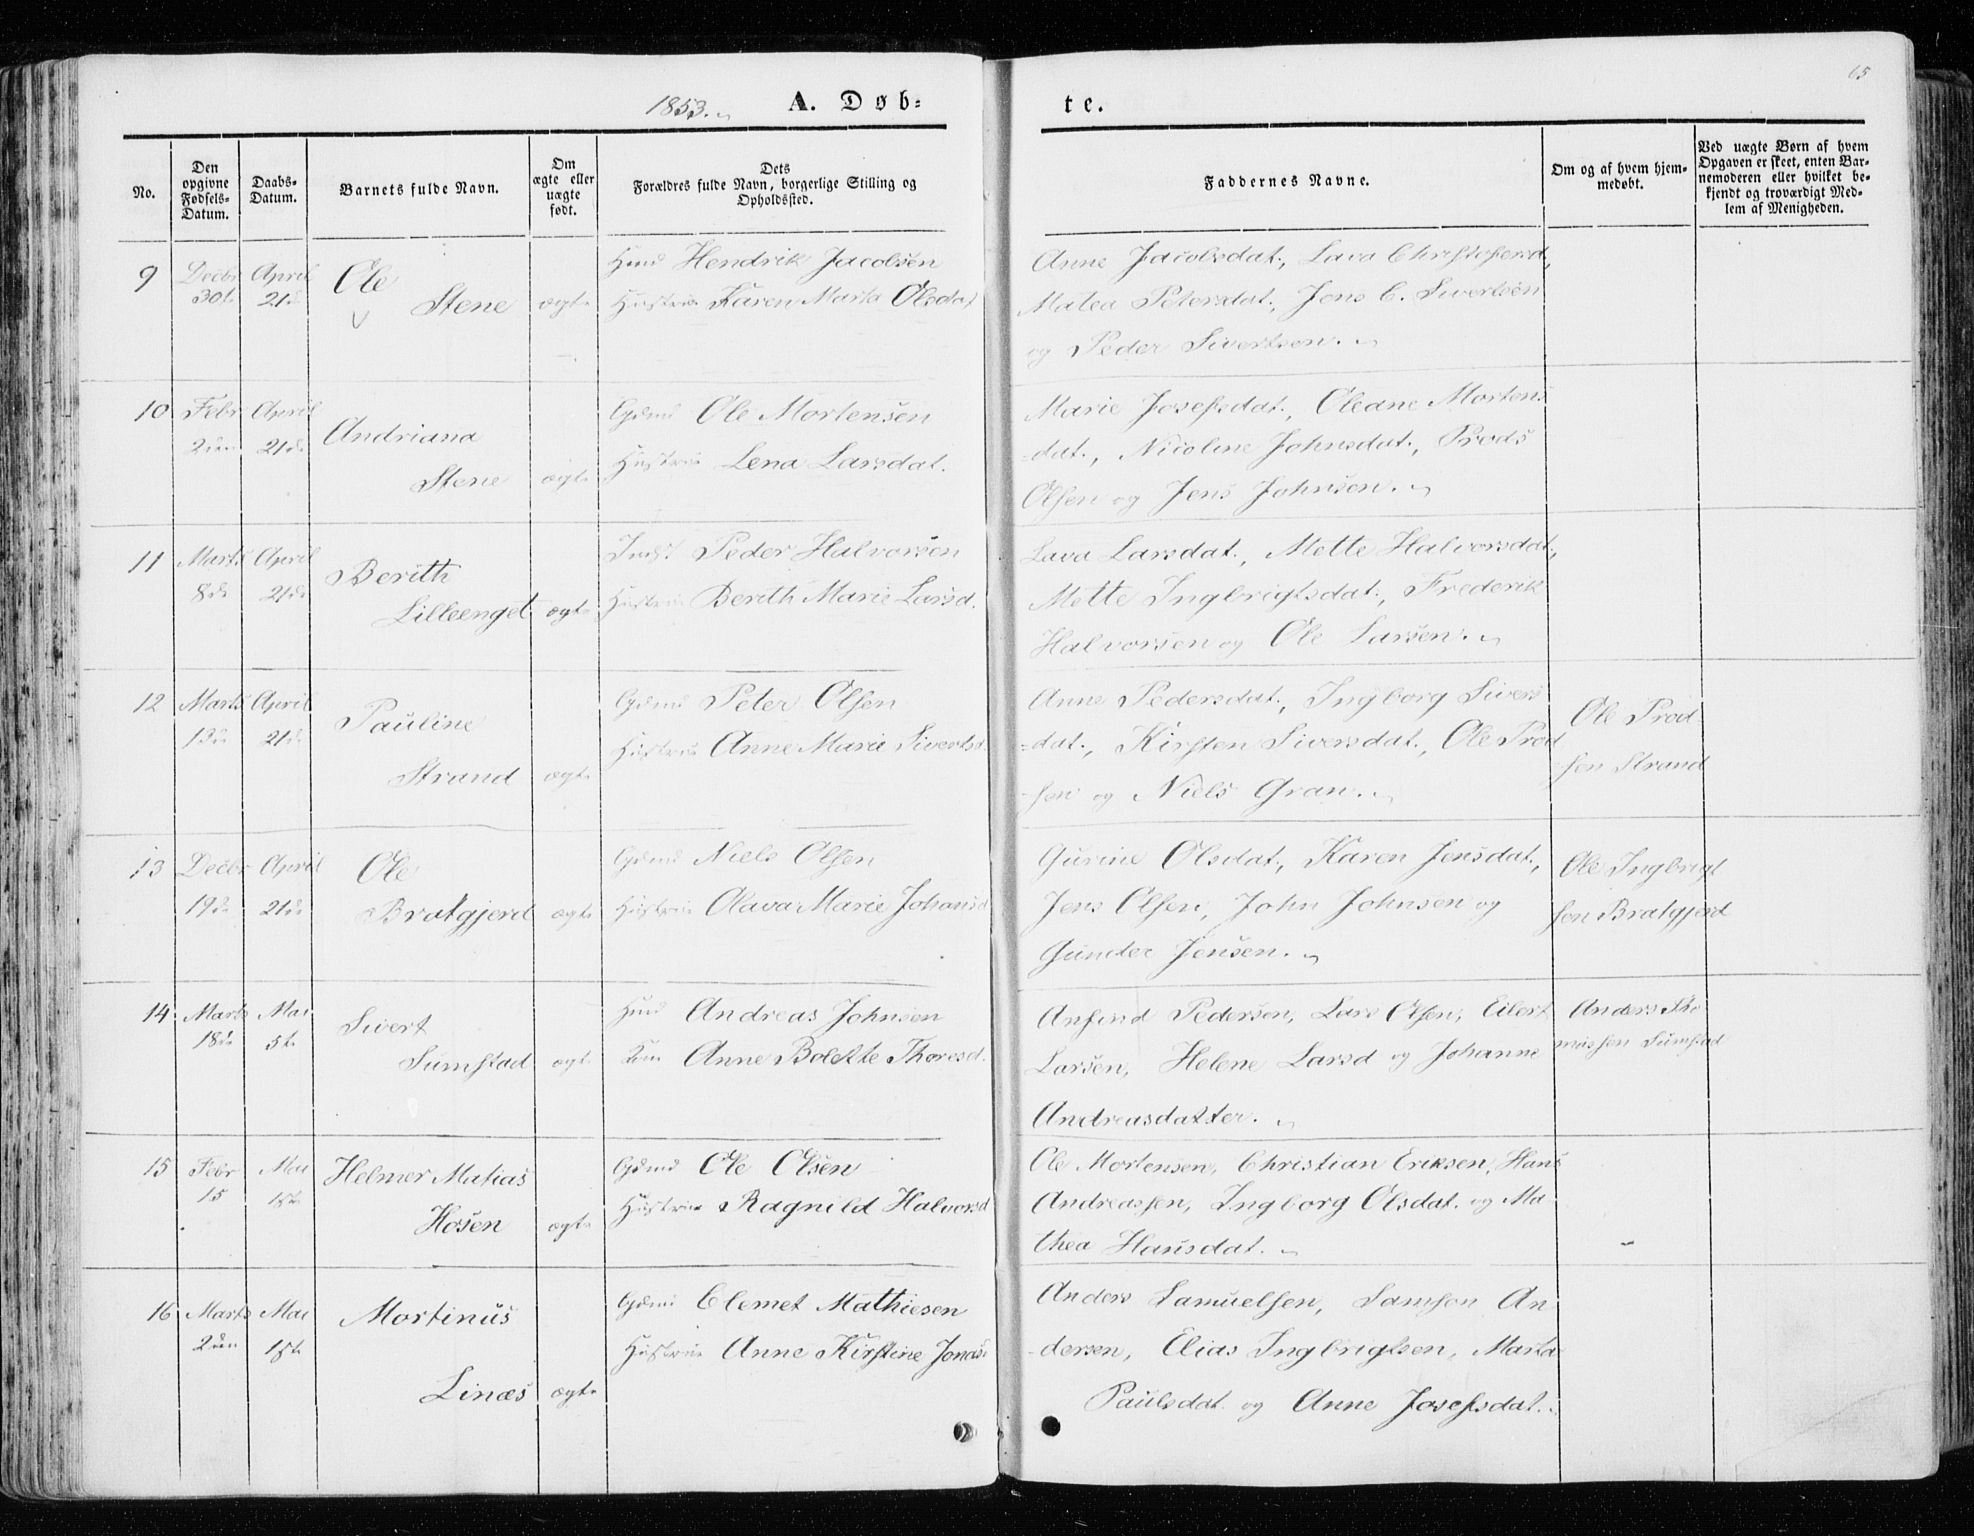 1853. A. Døb=
te.
65
No.
Den opgivne Fødsels-Datum.
Daabs-Datum.
Barnets fulde Navn.
Om ægte eller uægte født.
Dets Forældres fulde Navn, borgerlige Stilling og Opholdssted.
Faddernes Navne.
Om og af hvem hjemmedøbt.
Ved uægte Børn af hvem Opgaven er skeet, enten Barnemoderen eller hvilket bekjendt og troværdigt Medlem af Menigheden.
9 Decbr 30te April 21de Ole Stene ægte
Huusmd Hendrik Jacobsen
Hustrue Karen Marta Olsdat
Anne Jacobsdat., Lava Christofersd,
Matea Petersdat., Jens C. Sivertsen
og Peder Sivertsen.
10 Febr 2den April 21de Andriana Stene ægte
Gdmd Ole Mortensen
Hustrue Lena Larsdat.
Marie Josefsdat., Oleane Mortens
-dat., Nicoline Johnsdat., Prods
Olsen og Jens Johnsen.
11 Marts 8de April 21de Berith Lilleenget ægte
Indst Peder Halvorsen
Hustrue Berith Marie Larsd.
Lava Larsdat., Mette Halvorsdat,
Mette Ingbrigtsdat., Frederik
Halvorsen og Ole Larsen.
12 Marts 13de April 21de Pauline Strand ægte
Gdmd Peter Olsen
Hustrue Anne Marie Sivertsd.
Anne Pedersdat., Ingborg Sivers
=dat., Kirsten Siversdat., Ole Prod
sen og Niels Gran.
Ole Prod
sen Strand
13 Decbr 19de April 21de Ole Bratgjerd ægte
Gdmd Niels Olsen
Hustrue Olava Marie Johansd
Gurine Olsdat., Karen Jensdat.,
Jens Olsen, John Johnsen og
Gunder Jensen.
Ole Ingbrigt
sen Bratgjerd
14 Marts 18de Mai 5te Sivert Sumstad ægte
Huusmd Andreas Johnsen
Kone Anne Bolette Thoresd.
Anfind Pedersen, Lars Olsen, Eilert
Larsen, Helene Larsd og Johanne
Andreasdatter.
Anders Tho
massen Sumstad
15 Febr 15 Mai 15te Helmer Matias Hosen ægte
Gdmd Ole Olsen
Hustrue Ragnild Halvorsd
Ole Mortensen, Christian Eriksen, Hans
Andreassen, Ingborg Olsdat. og Ma-
thea Hansdat.
16 Marts 2den Mai 15te Mortinus Linæs ægte
Gdmd Clemet Mathiesen
Hustrue Anne Kirstine Jonas
Anders Samuelsen, Samson An-
-dersen, Elias Ingbrigtsen, Marta
Paulsdat. og Anne Josefsdat.